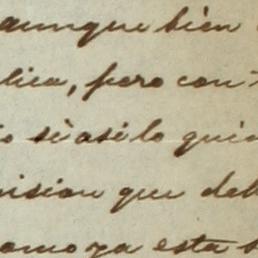 aunque bien
lica, pero con-
o si asi lo quie
mision que deb
omo ya esta